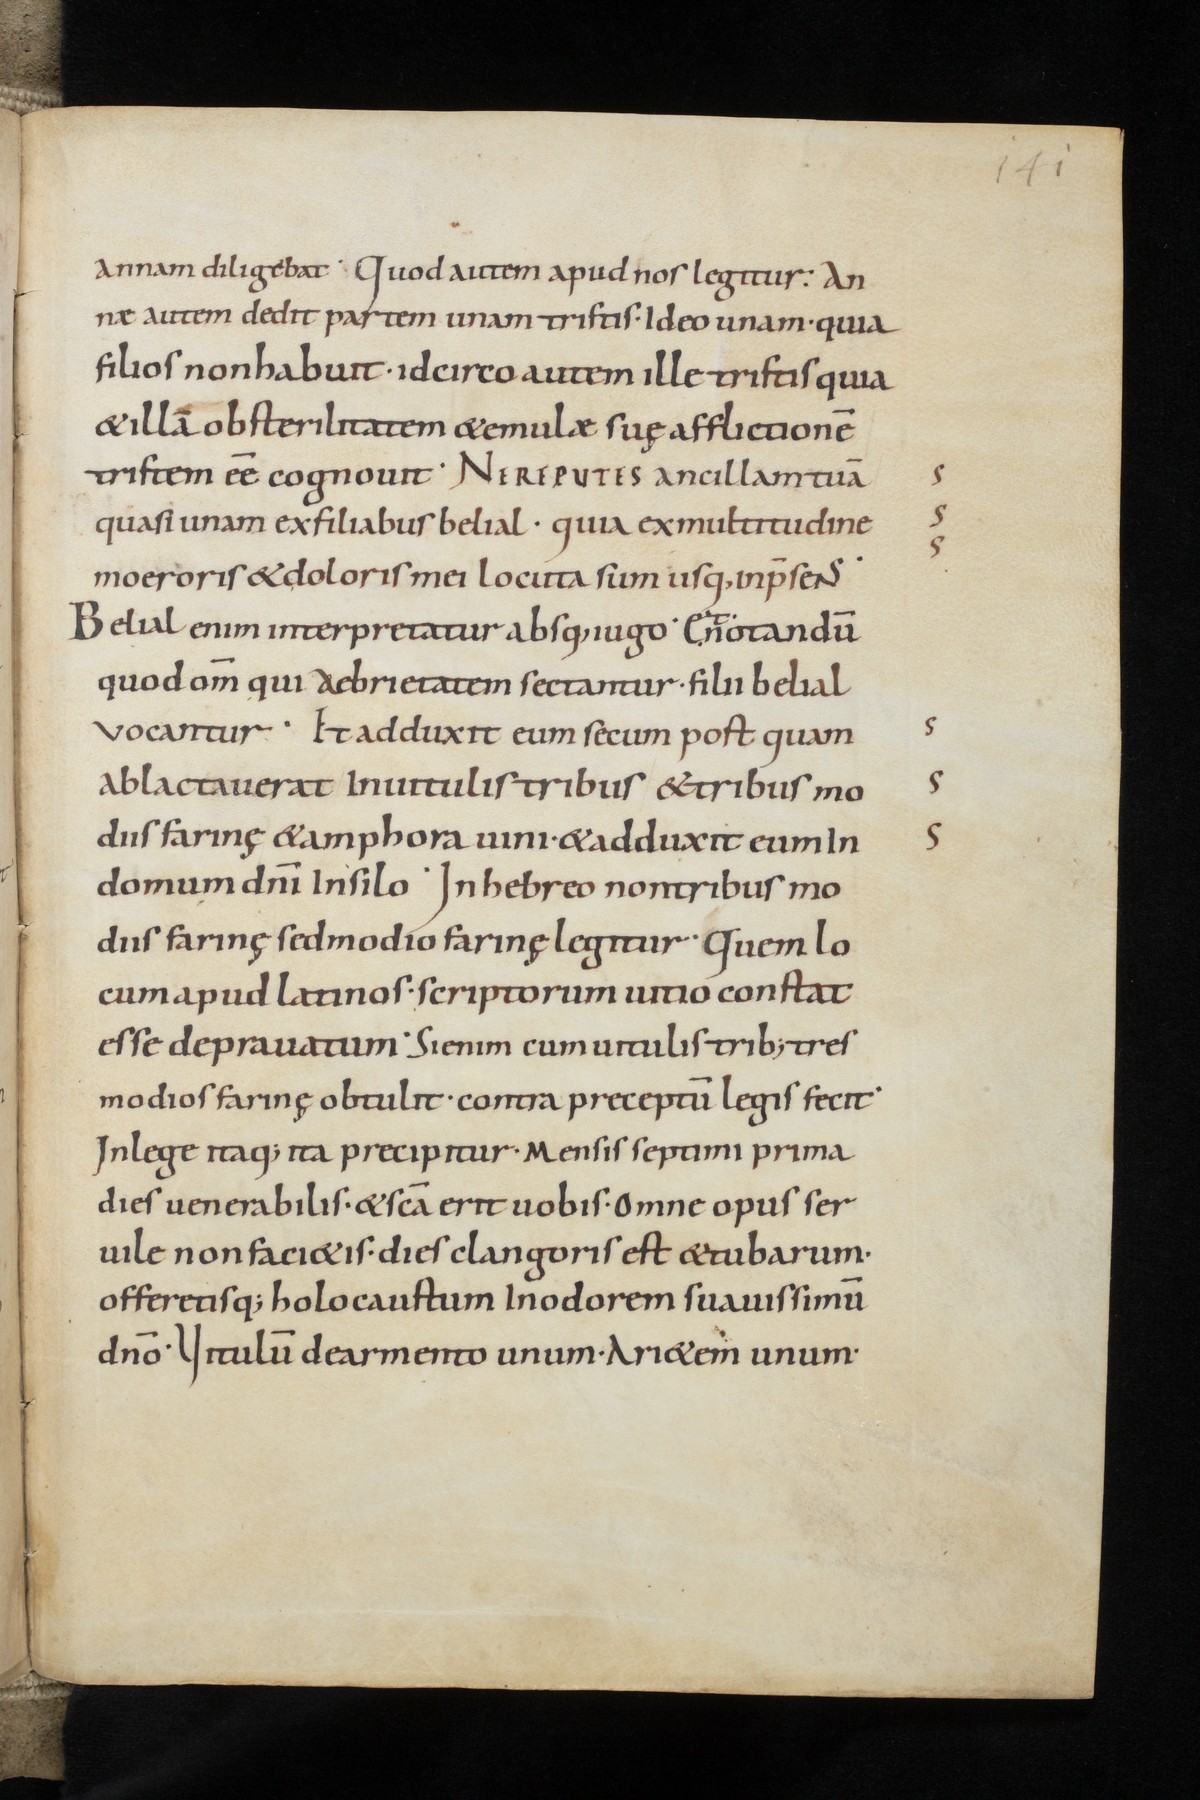 141
annam diligebat· Quod autem apud nos legitur: An
næ autem dedit partem unam tristis· Ideo unam· quia
filios non habuit· idcirco autem ille tristis quia
&illā ob sterilitatem & emulæ suę afflictionē
tristem eē cognouit· NE REPUTES ancillam tuā s
quasi unam ex filiabus belial· quia ex multitudine s
moeroris & doloris mei locuta sum usq; in p̄sens· s
Belial enim interpretatur absq; iugo· notandū
quod om̄ qui aebrietatem sectantur· filii belial
vocantur· Et adduxit eum secum post quam s
ablactauerat In uitulis tribus & tribus mo s
diis farinę & amphora uini· & adduxit eum In s
domum dn̄i In silo· In hebreo non tribus mo
diis farinę sed modio farinę legitur· Quem lo
cum apud latinos· scriptorum uitio constat
esse deprauatum· Si enim cum uitulis trib; tres
modios farinę obtulit· contra preceptū legis fecit·
In lege itaq; ita precipitur· Mensis septimi prima
dies uenerabilis· & sc̄a erit uobis· Omne opus ser
uile non faci&is· dies clangoris est & tubarum·
offeretisq; holocaustum In odorem suauissimū
dn̄o· Vitulū de armento unum· Ari&em unum·